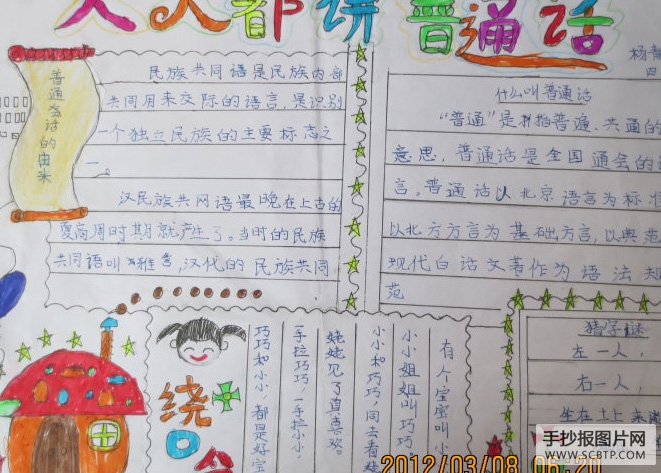 人人都讲普通话
杨
四
普通会话的由来
民族共同语是民族内部
共同用来交际的语言,是识别
一个独立民族的主要标志之
一。
汉民族共网语最晚在上古的
夏商周时期就产生了。当时的民族
共同语叫 雅言,汉代的民族共同
什么叫普通话
“普通”是 指普遍、共通的
意思,普通话是全国通会的
言,普通话以北京语言为标准
以北方方言为基础方言,以典范
现代白话文著作为语法规
范
绕口令
有个宝宝叫小
小小姐姐叫巧巧
小小和巧巧,同去看
姥姥见了真喜欢。
一手拉巧巧,一手拉小小
巧巧和小小,都是好宝
猜字谜
左一人,
右一人,
坐在土上来
手抄报图片网
WWW.SCBTP.COM
2012/03/08 06:20